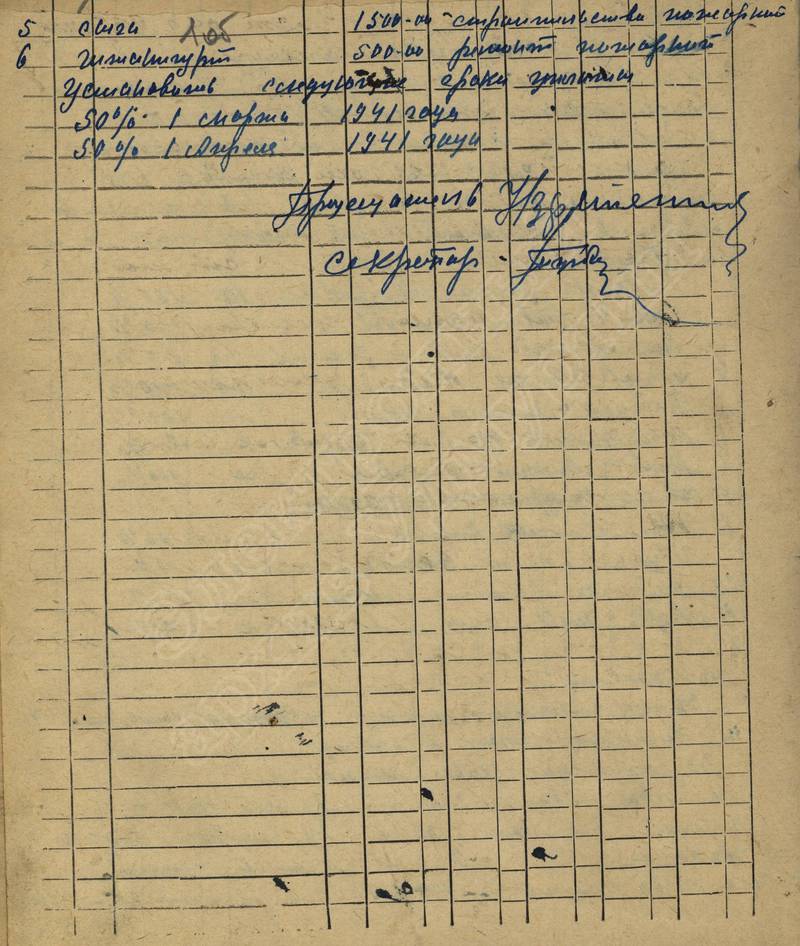 5 сыга 1500-00 строительство пожарной
6 Чиматурт 500-00 ремонт пожарной
106
Установить следующие сроки уплаты
50% 1 марта 1941 года
50% 1 Апреля 1941 года
Председатель
Секретарь -